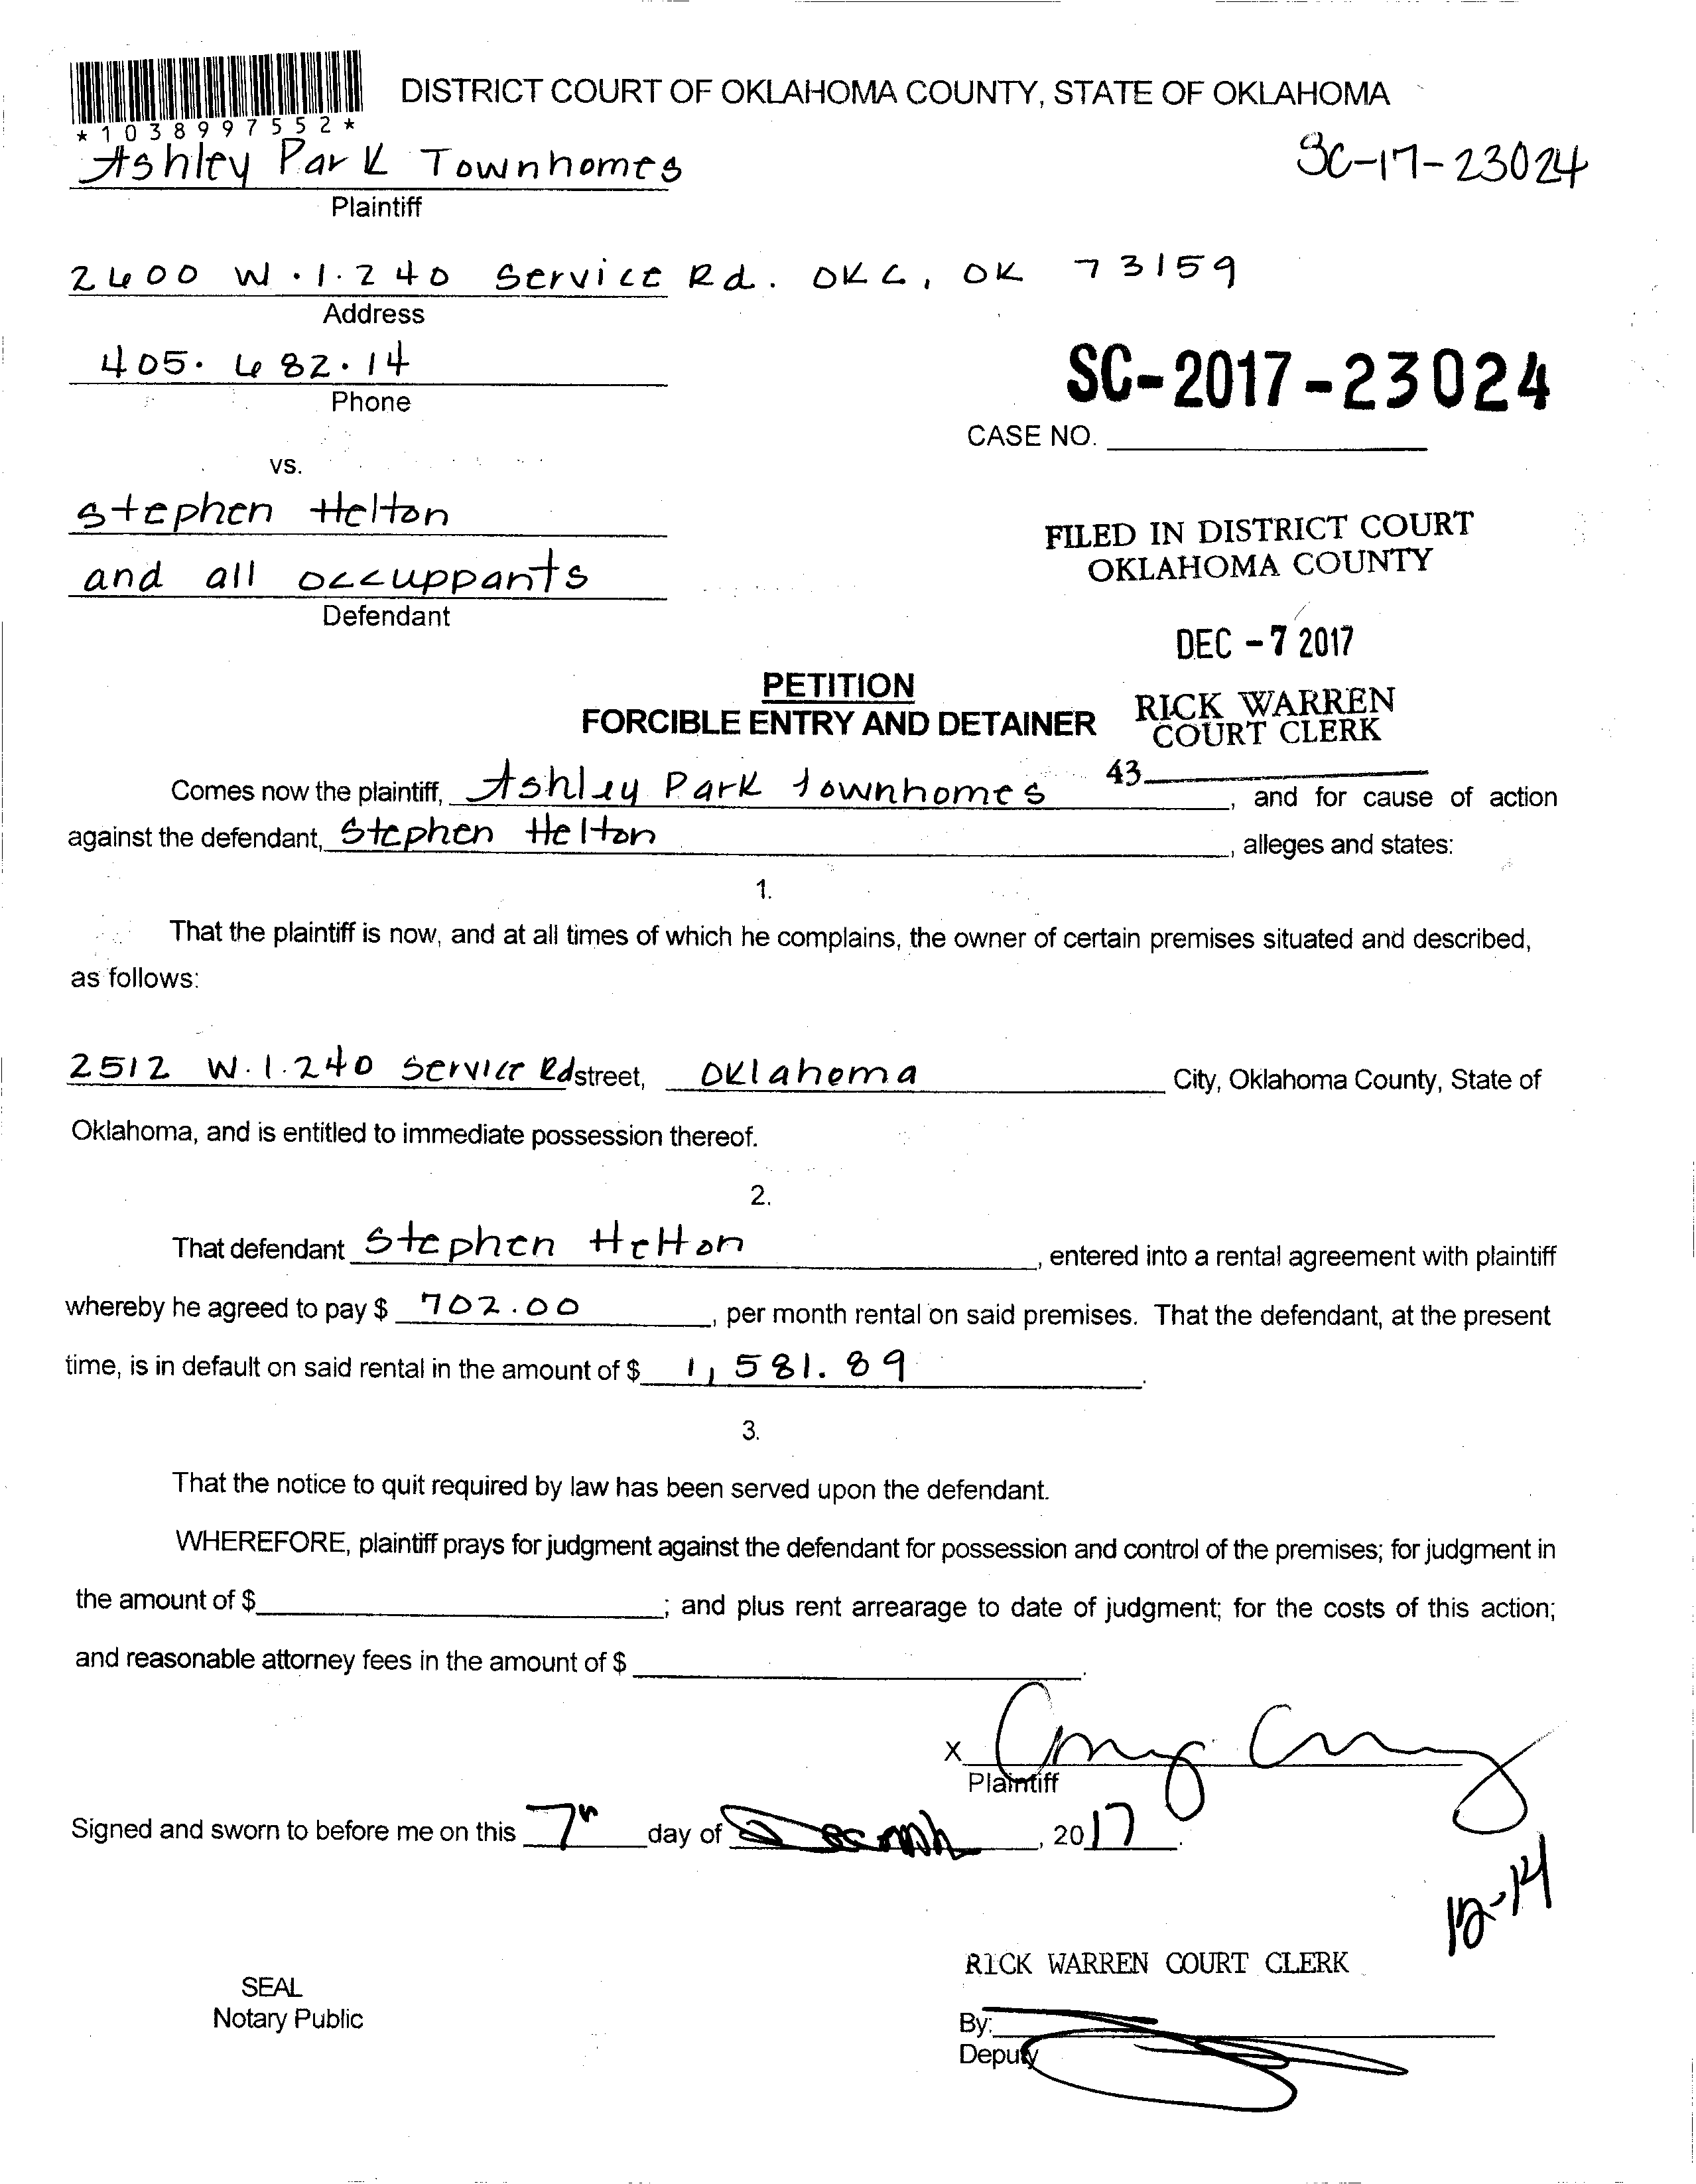 DISTRICT COURT OF OKLAHOMA COUNTY, STATE OF OKLAHOMA
*1038997552*
Ashley Park Townhomes
SC-17-23024
Plaintiff
2600 W.I.240 Service Rd. OKC, OK 73159
Address
405.682.14
Phone
SC-2017-23024
CASE NO.
vs.
Stephen Helton
and all occuppants
Defendant
FILED IN DISTRICT COURT
OKLAHOMA COUNTY
DEC -7 2017
RICK WARREN
COURT CLERK
43
PETITION
FORCIBLE ENTRY AND DETAINER
Comes now the plaintiff, Ashley Park Townhomes, and for cause of action
against the defendant, Stephen Helton, alleges and states:
1.
That the plaintiff is now, and at all times of which he complains, the owner of certain premises situated and described,
as follows:
2512 W.I.240 Service Rd street, Oklahoma City, Oklahoma County, State of
Oklahoma, and is entitled to immediate possession thereof.
2.
That defendant Stephen Helton, entered into a rental agreement with plaintiff
whereby he agreed to pay $ 702.00, per month rental on said premises. That the defendant, at the present
time, is in default on said rental in the amount of $ 1,581.89.
3.
That the notice to quit required by law has been served upon the defendant.
WHEREFORE, plaintiff prays for judgment against the defendant for possession and control of the premises; for judgment in
the amount of $ ; and plus rent arrearage to date of judgment; for the costs of this action;
and reasonable attorney fees in the amount of $ .
X
Plaintiff
Signed and sworn to before me on this 7th day of December, 2017.
12-14
RICK WARREN COURT CLERK
SEAL
Notary Public
By:
Deputy